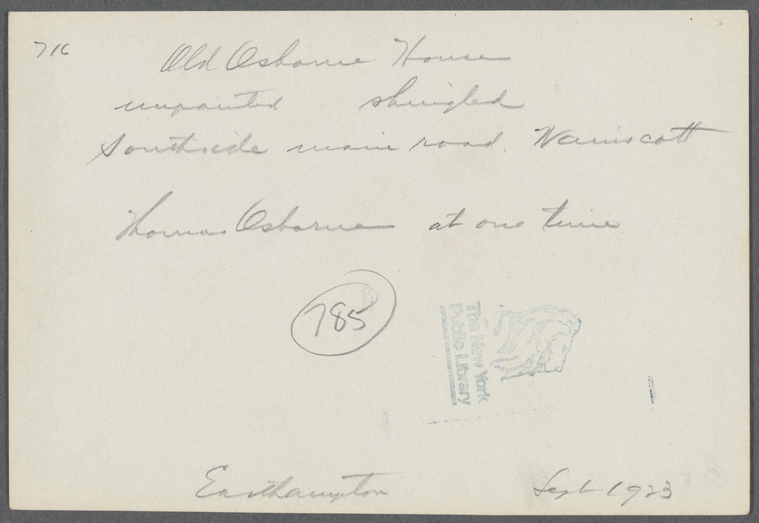 716
Old Osborne House
unpainted shingled
Southside main road. Wainscott
Thomas Osborne at one time
785
The New York
Public Library
Easthampton Sept 1923